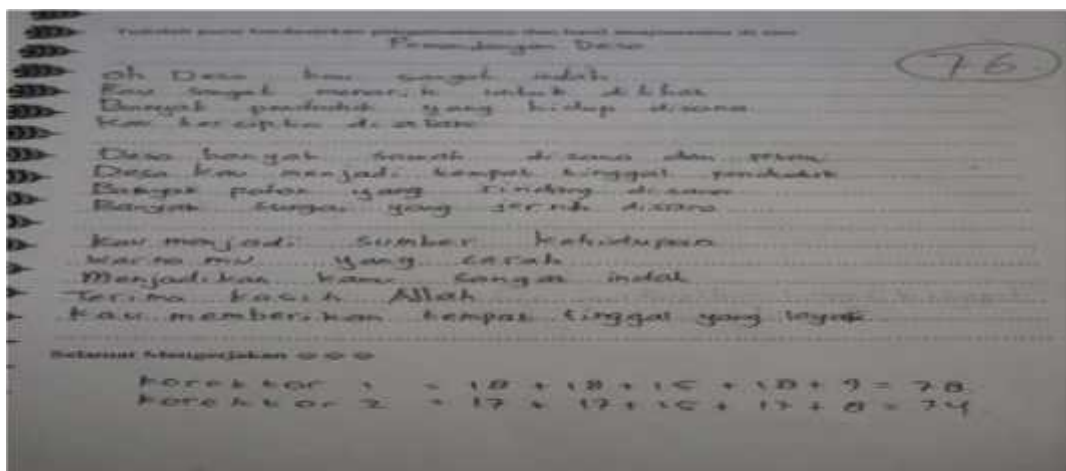 Tuliskan puisi berdasarkan pengamatanmu dan hasil
Pemandangan Desa
76
Oh Desa kau sangat indah
Kau sangat menarik untuk dilihat
Banyak penduduk yang hidup disana
Kau tercipta di alam
Desa banyak sawah di sana dan
Desa kau menjadi tempat tinggal penduduk
Banyak pohon yang rindang disana
Banyak sungai yang jernih disana
Kau menjadi sumber kehidupan
Warna mu yang cerah
Menjadikan kamu sangat indah
Terima kasih Allah
Kau memberikan tempat tinggal yang layak
Selamat Mengerjakan
Korektor 1 = 18 + 18 + 15 + 18 + 9 = 78
Korektor 2 = 17 + 17 + 15 + 17 + 8 = 74